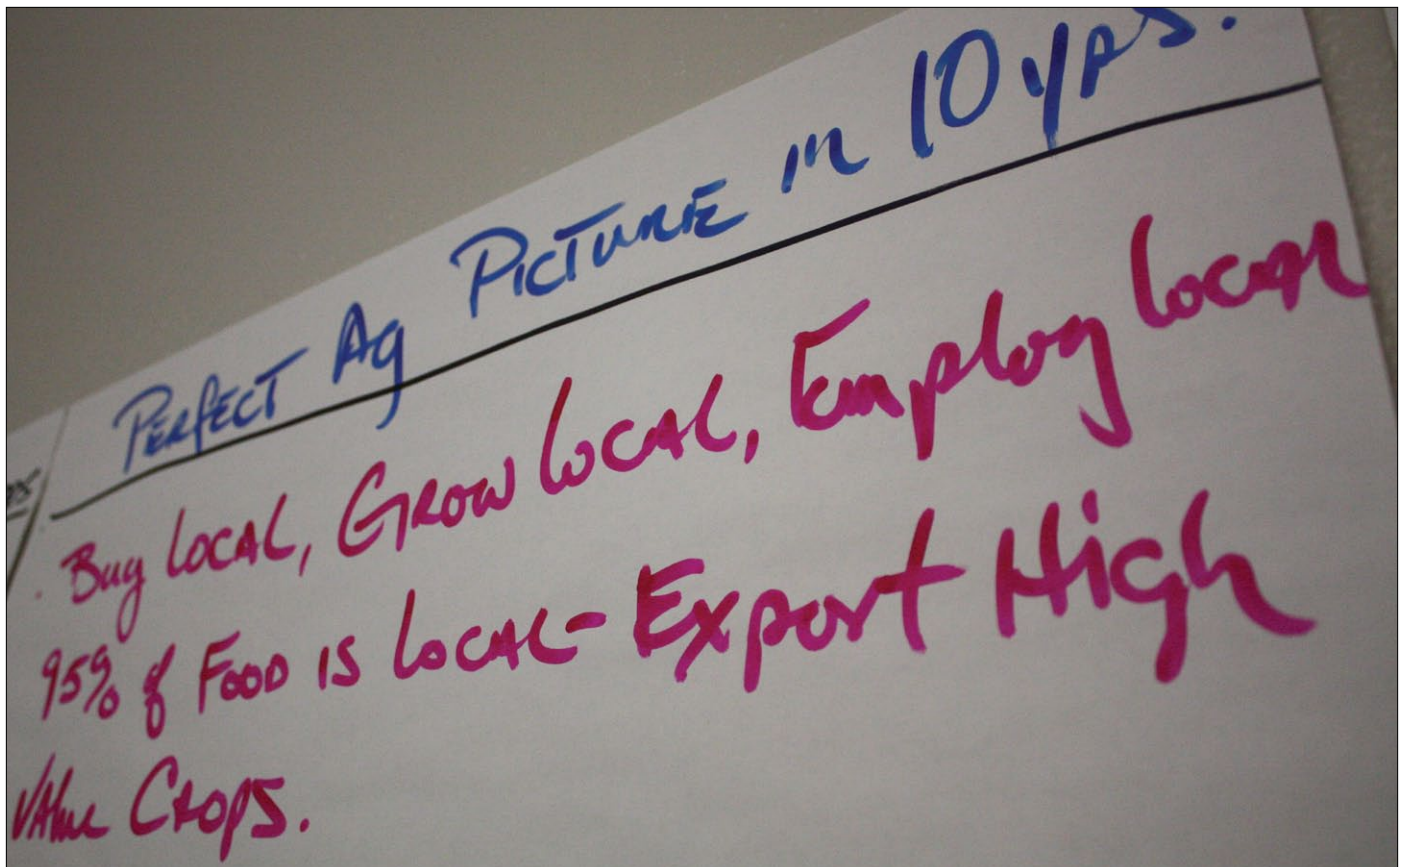 Perfect Ag Picture in 10 yrs.
. Buy Local, Grow Local, Employ Local
95% of Food is Local - Export High
Value Crops.